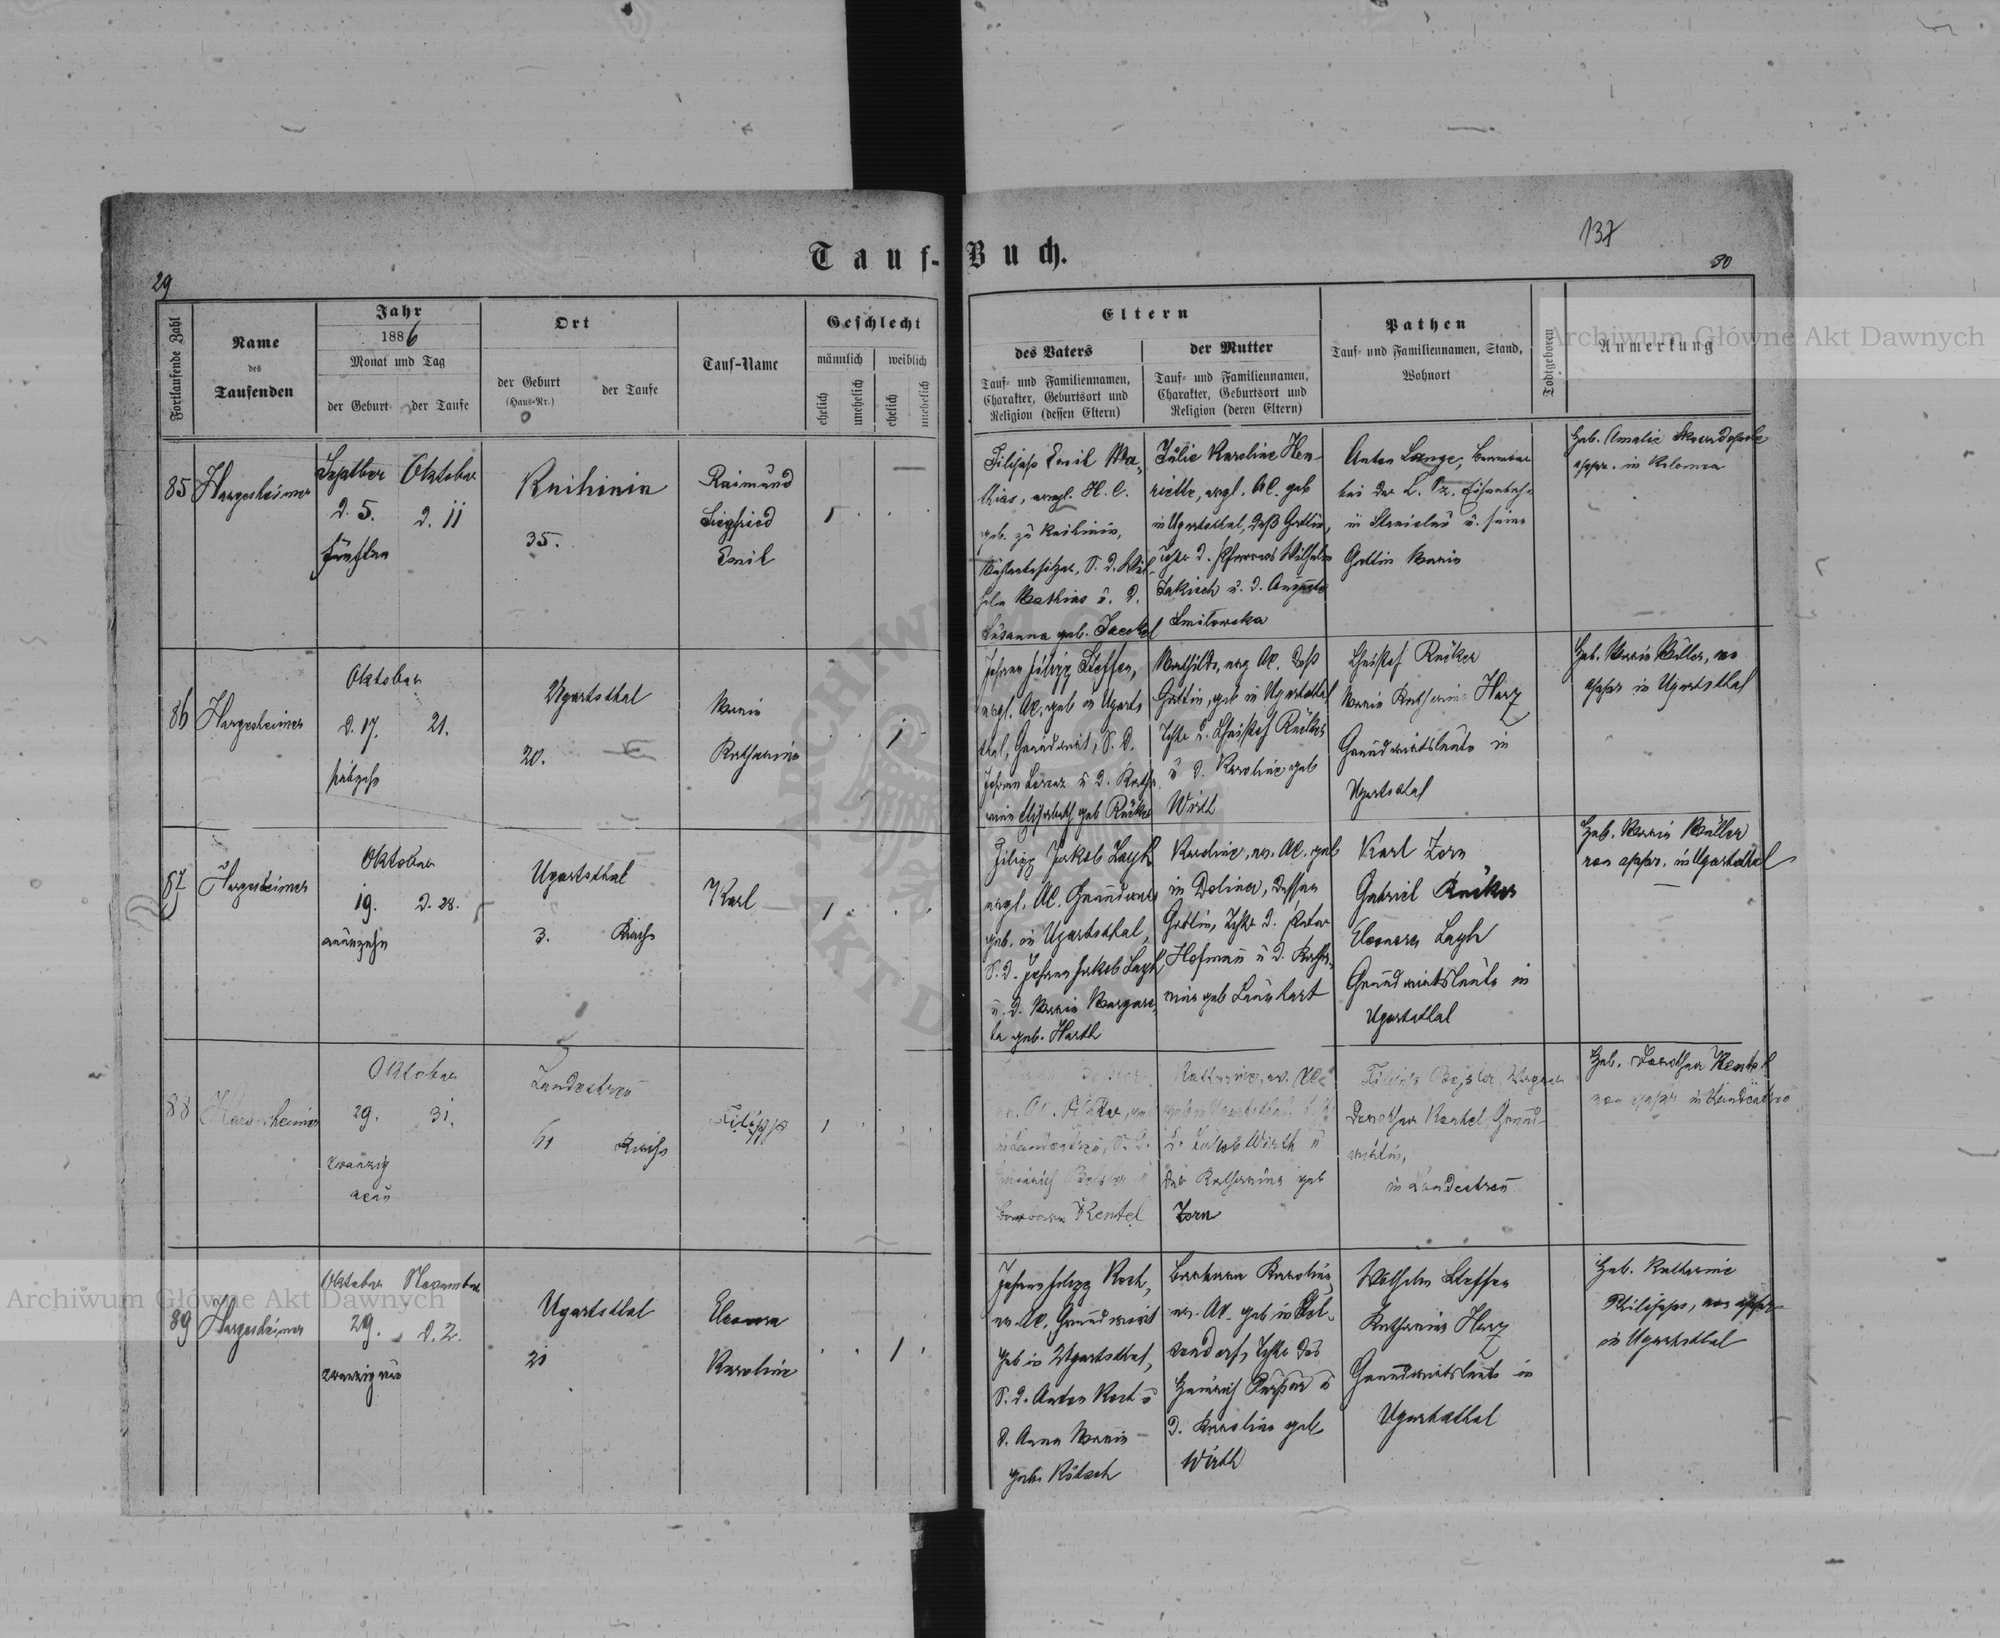 137
Tauf-Buch.
29
30
Fortlaufende Zahl
Name
des
Taufenden
Jahr
1886
Monat und Tag
der Geburt
der Taufe
Ort
der Geburt
(Haus-Nr.)
der Taufe
Tauf-Name
Geschlecht
männlich
weiblich
ehelich
unehelich
ehelich
unehelich
Eltern
des Vaters
Tauf- und Familiennamen,
Charakter, Geburtsort und
Religion (dessen Eltern)
der Mutter
Tauf- und Familiennamen,
Charakter, Geburtsort und
Religion (deren Eltern)
Pathen
Tauf- und Familiennamen, Stand,
Wohnort
Todtgeboren
Anmerkung
85
Hargesheimer
Septber
d. 5.
fünften
Oktober
d. 11
Knihinin
35.
Raimund
Siegfried
Emil
1
Filipp Emil Ma-
thias, evngl. H. C.
geb. zu Knihinin,
S. d. Wil-
helm Mathias u. d.
Susanna geb. Jaeckel
Julie Karoline Hen-
riette, evngl. AC. geb
in Ugartsthal, deß Gattin,
Tchtr d. Pfarrers Wilhelm
Jakisch u. d. Auguste
Smilowska
Anton Lange, Beamter
bei der L. Cz. Eisenbahn
in Stanislau u. seine
Gattin Maria
Heb. Amalie
appr. in Kolomea
86
Hargesheimer
Oktober
d. 17.
siebzehn
21.
Ugartsthal
20.
Maria
Katharina
1
Johann Filipp Steffen,
evgl. AC. geb in Ugarts
thal, Grundwirt, S. d.
Johann Lorenz u d. Katha
rina Elisabeth geb Rücker
Mathilde, evg AC. deß
Gattin, geb in Ugartsthal
Tchtr d. Christof Rücker
u d. Karoline geb
Wirth
Christof Rücker
Maria Katharina Harz
Grundwirtsleute in
Ugartsthal
Heb. Maria Müller, non
appr in Ugartsthal
87
Hargesheimer
Oktober
19.
neunzehn
d. 28.
Ugartsthal
3.
Kirche
Karl
1
Filipp Jakob Layh
evgl. AC. Grundwirt
geb. in Ugartsthal,
S. d. Johann Jakob Layh
u. d. Maria Margare-
ta geb. Harth
Karoline, ev. AC. geb
in Dolina, dessen
Gattin, Tchtr d. Peter
Hofmann u d. Katha-
rina geb Leinhart
Karl Zorn
Gabriel Rücker
Eleonora Layh
Grundwirtsleute in
Ugartsthal
Heb. Maria Müller
non appr. in Ugartsthal
88
Hargesheimer
Oktober
29.
zwanzig
neun
31.
Landestreu
61
Kirche
Filipp
1
in Landestreu, S. d.
Heinrich
Barbara Rentel
Katharina, ev. AC.
geb in Ugartsthal
d. Jakob Wirth u
der Katharina geb
Zorn
Filipp
Dorothea Kentel Grund-
wirtin,
in Landestreu
Heb. Dorothea Kentel
non appr in Landestreu
89
Hargesheimer
Oktober
29.
zwanzig neun
November
d. 2.
Ugartsthal
21
Eleonora
Karoline
1
Johann Filipp Koch,
ev. AC. Grundwirt
geb in Ugartsthal,
S. d. Anton Koch u
d. Anna Maria
geb. Kölsch
Barbara Karolina,
ev. AC. geb in
Tchtr des
Heinrich
d. Karolina geb
Wirth
Wilhelm Steffen
Katharina Harz
Grundwirtsleute in
Ugartsthal
Heb. Katharina
Philipps, non appr.
in Ugartsthal
Archiwum Główne Akt Dawnych
Archiwum Główne Akt Dawnych